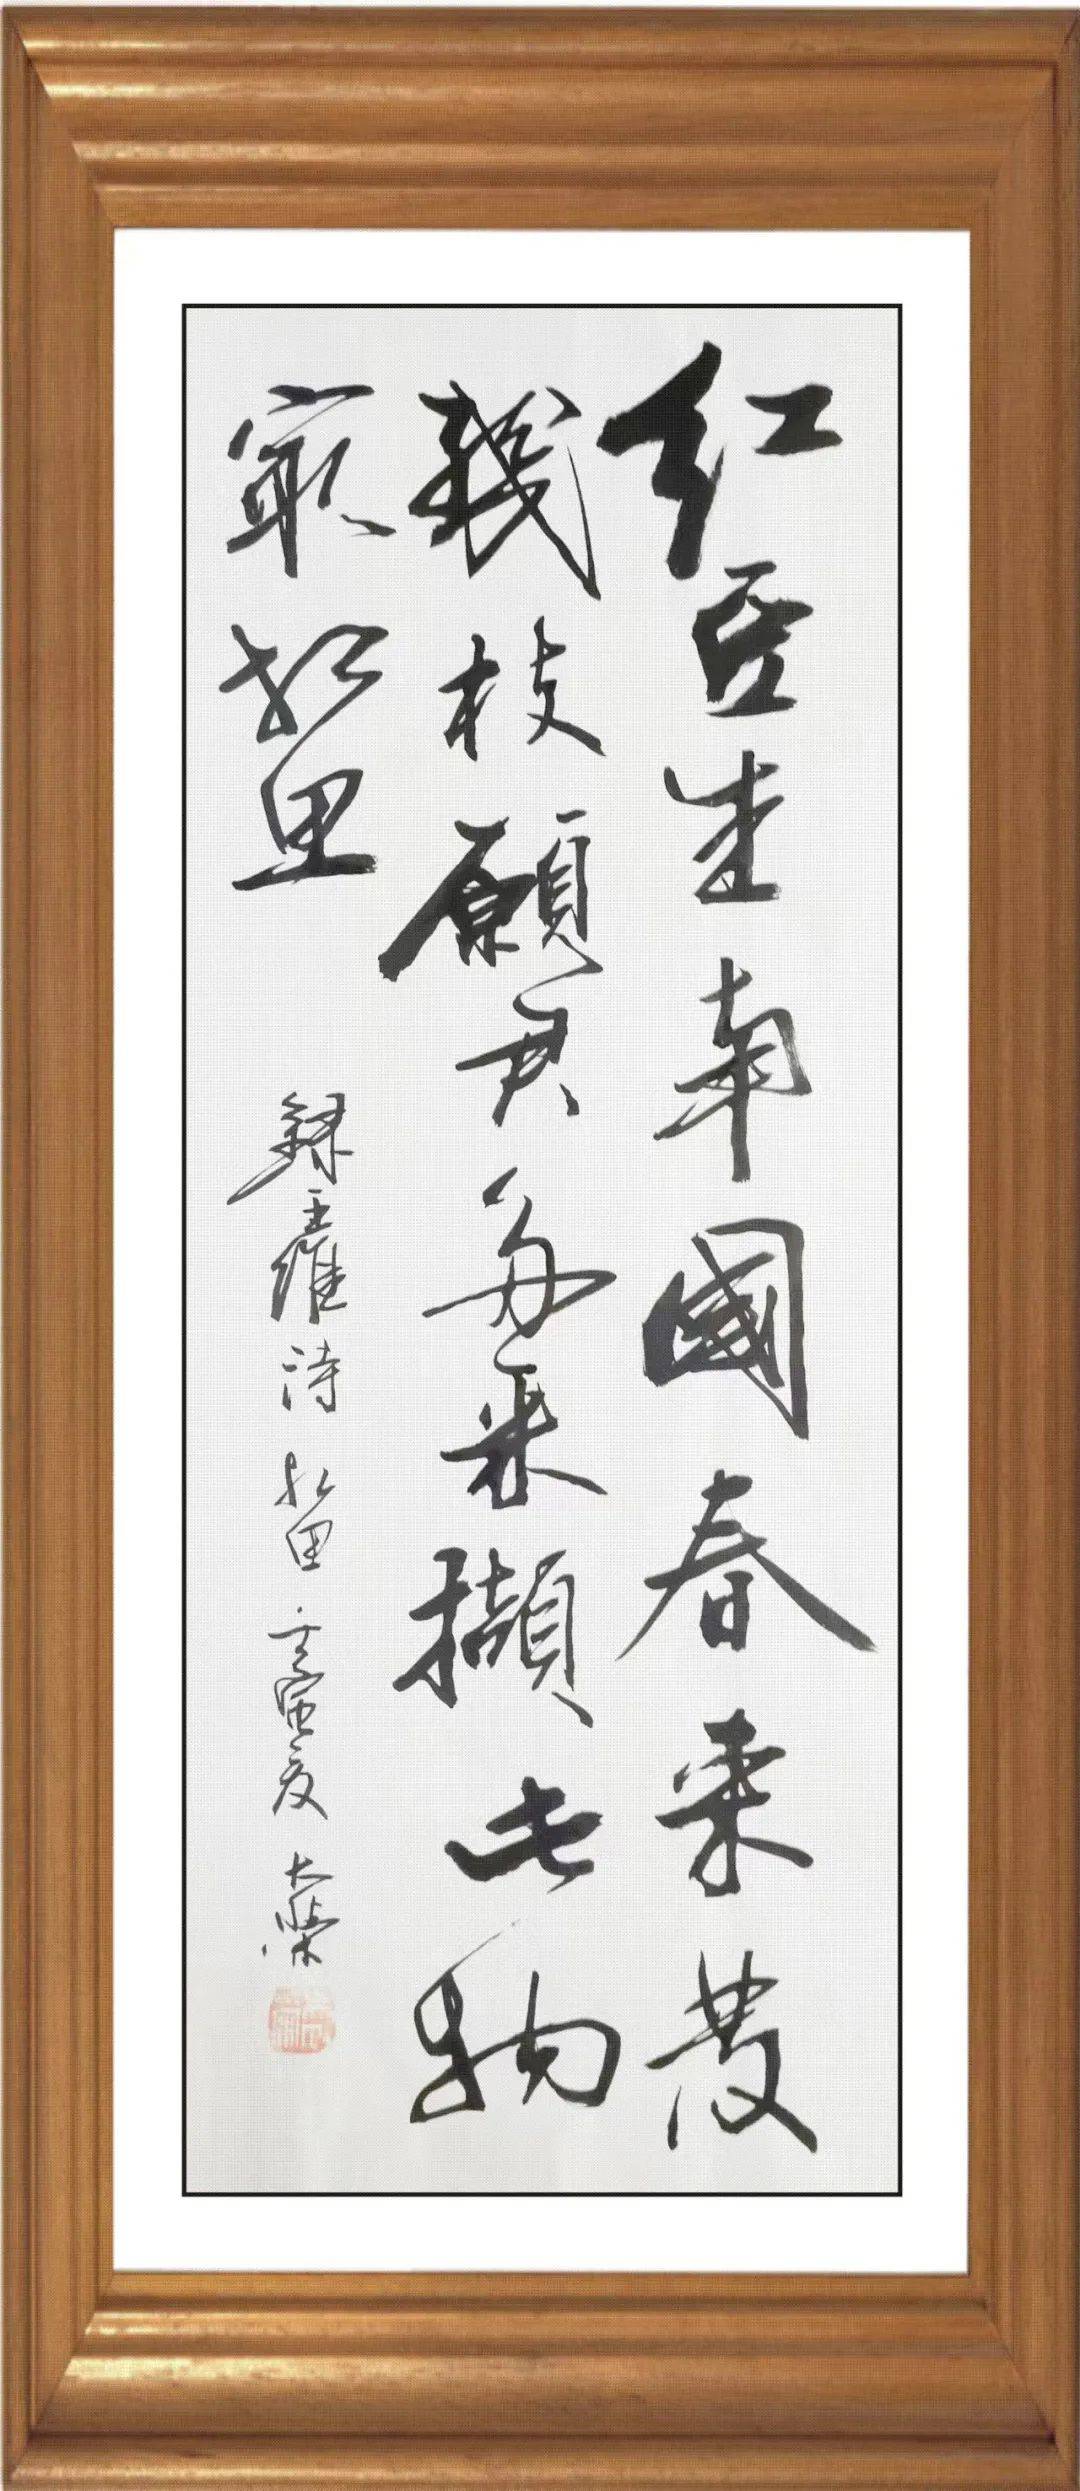 紅豆生南國春來發
幾枝願君多采擷此物
最相思
錄王維詩 相思 壬寅夏 大榮